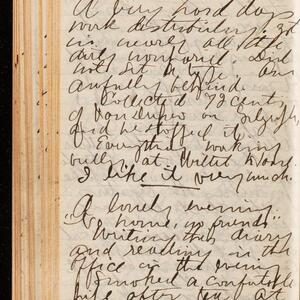 A very hard days
work distributing. Set
in nearly all the
dirty nonpareil. Did
not set a type. Am
awfully behind.
Collected 72 cents
of Van
and he stopped it.
Everything working
bully at Willet &
I like it very much.
"A lonely evening
no home, no friends"
Writing this diary
and reading in the
office in the evening
Smoked a comfortable
pipe after tea at